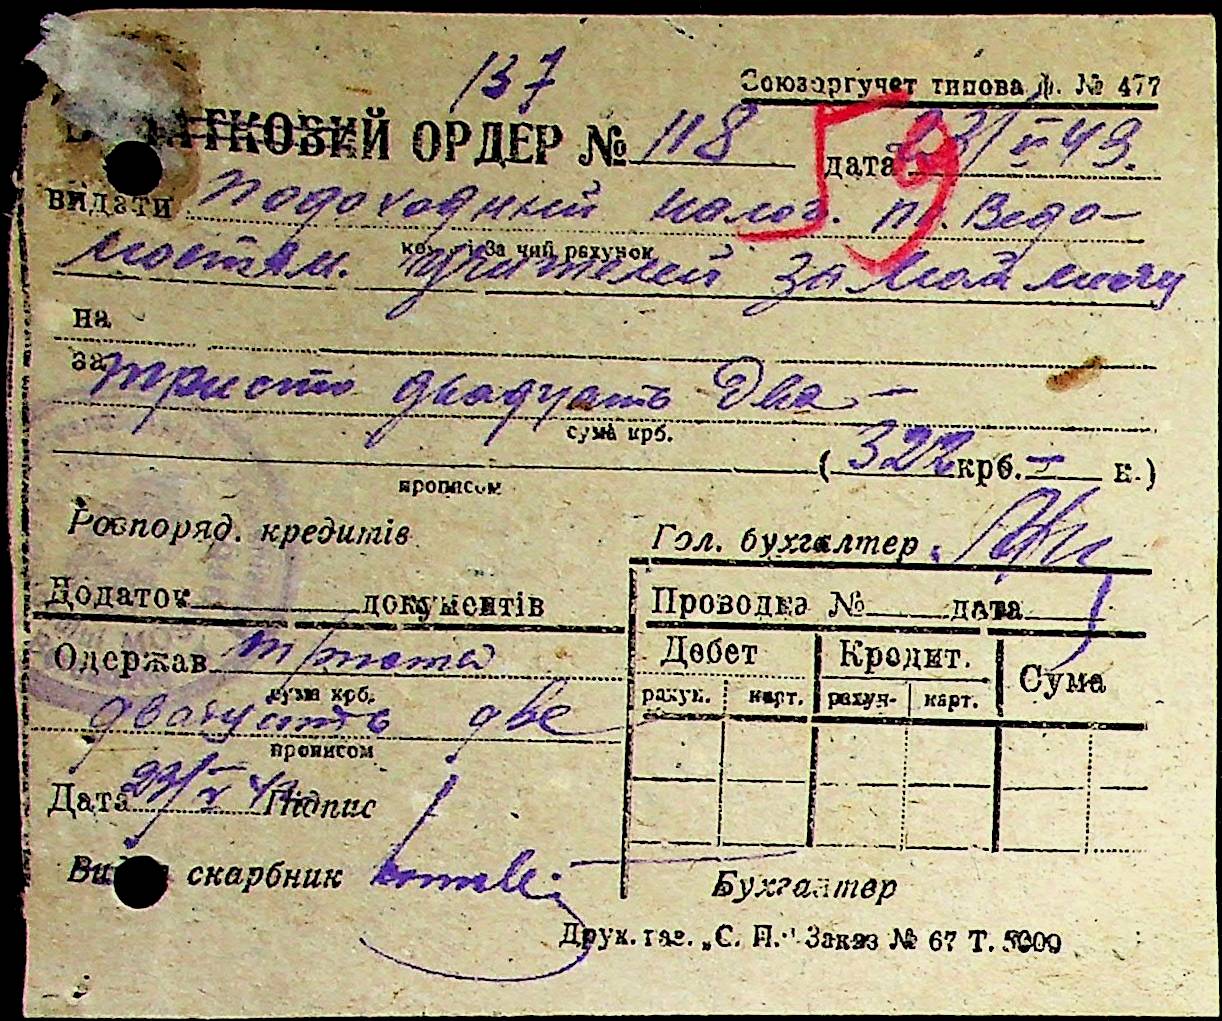 137
Союзоргучет типова ф. № 477
59
ВИДАТКОВИЙ ОРДЕР № 118 дата 23/V 49.
видати Подоходный налог. по. Ведо-
кому і за чий рахунок
мостям. учителей за май месяц
на
за триста двадцать два -
сума крб.
(322 крб. - к.)
прописом
Розпоряд. кредитів
Гол. бухгалтер
Додаток документів
Проводка № дата
Одержав триста
Дебет Кредит. Сума
сума крб.
рахун. карт. рахун- карт.
двадцать две
прописом
Дата 23/V 49 Підпис
Видав скарбник
Бухгалтер
Друк. газ. „С. П." Заказ № 67 Т. 5000